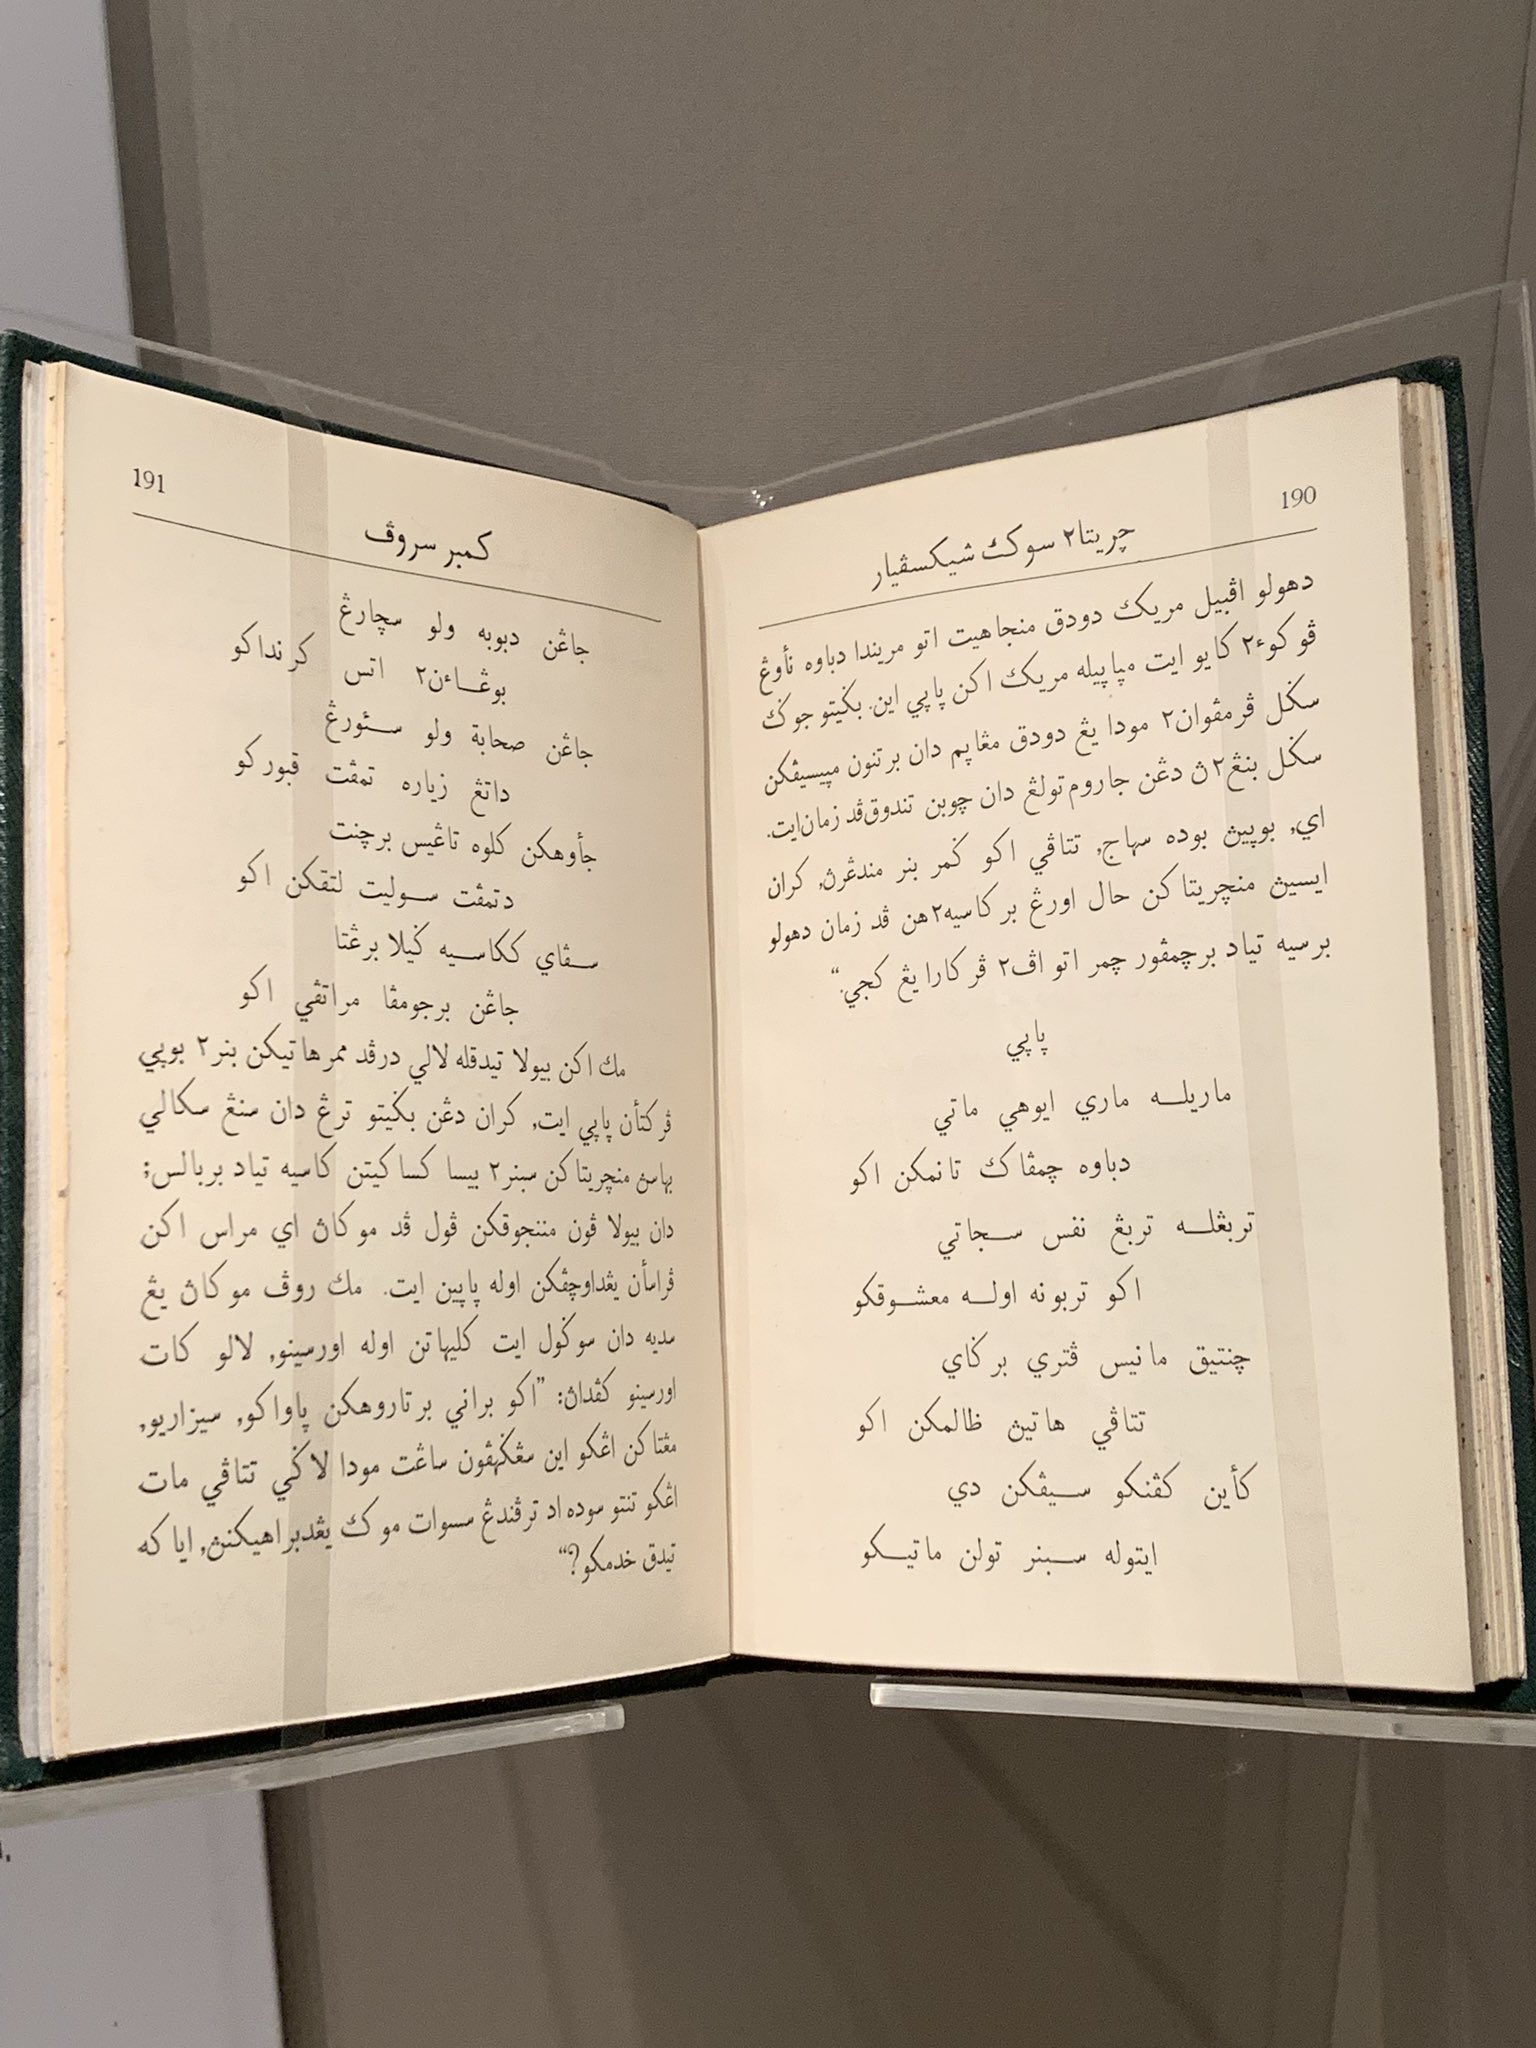 190
چريتا٢ سوكت شيكسڤيار
دهولو اڤبيل مريكت دودق منجاهيت اتو مريندا دباوه نأوڠ
ڤوكوء٢ كايو ايت مڽاپيله مريكت اكن ڽاڽي اين. بݢيتو جوݢت
سݢل ڤرمڤوان٢ مودا يڠ دودق مڠاڽم دان برتنون مڽيسيڤكن
سݢل بنڠ٢ڽ دڠن جاروم تولڠ دان چوبن تندوق ڤد زمان ايت.
اي, بوڽيڽ بوده سهاج, تتاڤي اكو ݢمر بنر مندڠرڽ, كران
ايسيڽ منچريتاكن حال اورڠ بركاسيه٢هن ڤد زمان دهولو
برسيه تياد برچمڤور چمر اتو اڤ٢ ڤركارا يڠ كجي.“
ڽاڽي
ماريلــه ماري ايوهي ماتي
دباوه چمڤاكت تانمكن اكو
تربڠلــه تربڠ نفس سـجاتي
اكو تربونه اولــه معشـوقكو
چنتيق مانيس ڤتري برݢاي
تتاڤي هاتيڽ ظالمكن اكو
كأين كڤنكو سـيڤكن دي
ايتوله سـبنر تولن ماتيـكو
191
كمبر سروڤ
جاڠن دبوبه ولو سچارڠ
بوڠـاءن٢ اتس كرنداكو
جاڠن صحابة ولو سـئورڠ
داتڠ زياره تمڤت قبوركو
جأوهكن كلوه تاڠيس برچنت
دتمڤت سـوليت لتقكن اكو
سـڤاي ككاسـيه ݢيلا برڠتا
جاڠن برجومڤا مراتڤي اكو
مك اكن بيولا تيدقله لالي درڤد ممرهاتيكن بنر٢ بوڽي
ڤركتأن ڽاڽي ايت, كران دڠن بݢيتو ترڠ دان سنڠ سكالي
بهاسڽ منچريتاكن سبنر٢ بيسا كساكيتن كاسيه تياد بربالس;
دان بيولا ڤون مننجوقكن ڤول ڤد موكاڽ اي مراس اكن
ڤراسأن يڠداوچڤكن اوله ڽاڽين ايت. مك روڤ موكاڽ يڠ
سديه دان سوݢول ايت كليهاتن اوله اورسينو, لالو كات
اورسينو كڤداڽ: ”اكو براني برتاروهكن ڽاواكو, سيزاريو,
مڠتاكن اڠكو اين سڠݢهڤون ساڠت مودا لاݢي تتاڤي مات
اڠكو تنتو سوده اد ترڤندڠ سسوات موكت يڠدبراهيكنڽ, اياكه
تيدق خدمكو?“